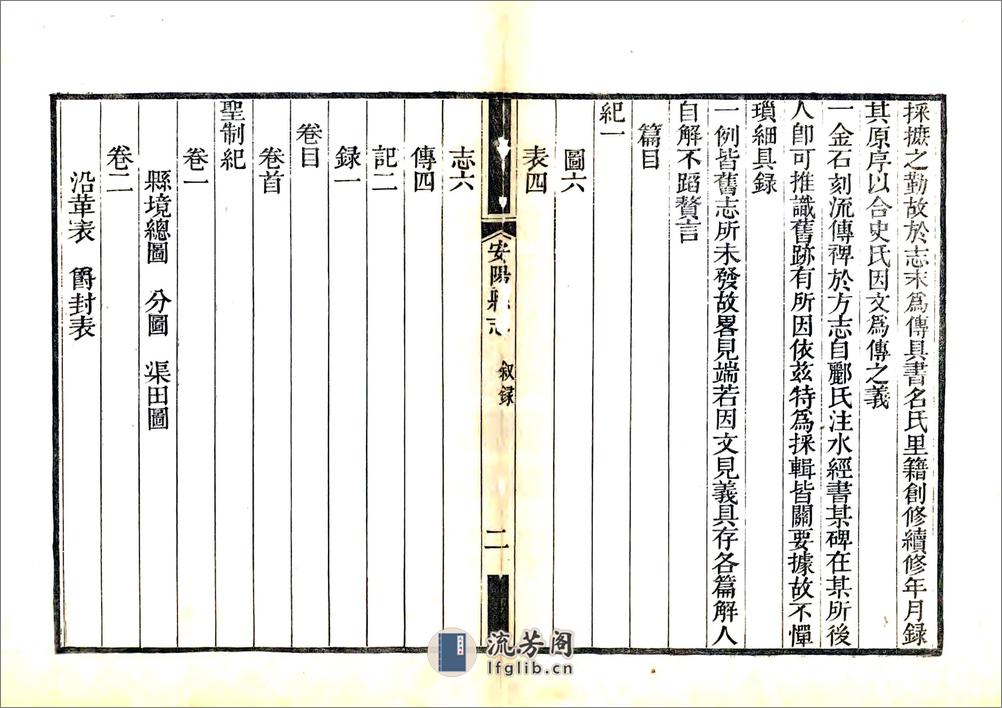 採摭之勤故於志末爲傳具書名氏里籍創修續修年月録
其原序以合史氏因文爲傳之義
一金石刻流傳裨於方志自酈氏注水經書某碑在某所後
人即可推識舊跡有所因依兹特爲採輯皆關要據故不憚
瑣細具録
一例皆舊志所未發故畧見端若因文見義具存各篇解人
自解不蹈贅言
篇目
紀一
圖六
表四
安陽縣志 叙録 二
志六
傳四
記二
録一
卷目
卷首
聖制紀
卷一
縣境總圖 分圖 渠田圖
卷二
沿革表 爵封表
流芳阁
lfglib.cn